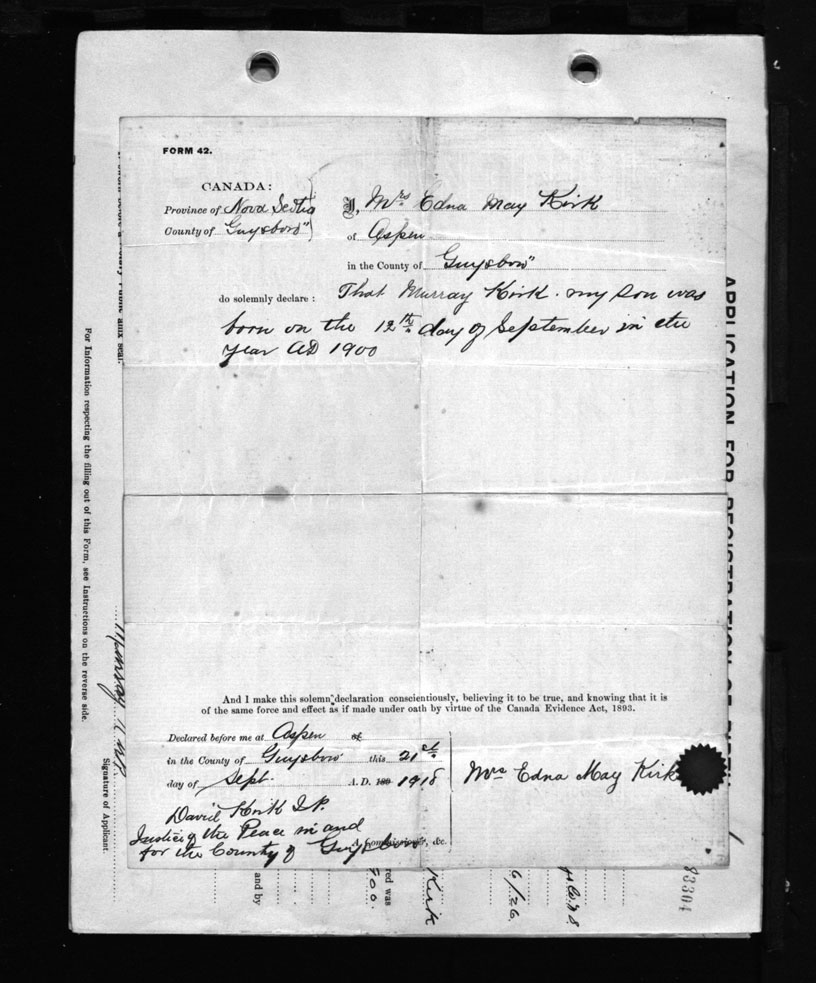 FORM 42.
CANADA:
Province of Nova Scotia
County of Guysboro"
I, Mrs Edna May Kirk
of Aspen
in the County of Guysboro"
do solemnly declare: That Murray Kirk. my son was
born on the 12th day of September in the
year AD 1900
And I make this solemn declaration conscientiously, believing it to be true, and knowing that it is
of the same force and effect as if made under oath by virtue of the Canada Evidence Act, 1893.
Declared before me at Aspen of
in the County of Guysboro this 21st
day of Sept. A.D. 189 1918
Mrs Edna May Kirk
David Kirk J.P.
Justice of the Peace in and
for the County of Guysboro
A Commissioner, &c.
For Information respecting the filling out of this Form, see Instructions on the reverse side.
Signature of Applicant.
Murray Kirk
APPLICATION FOR REGISTRATION OF BIRTH
and by
red was
900.
Kirk
6/26.
83304